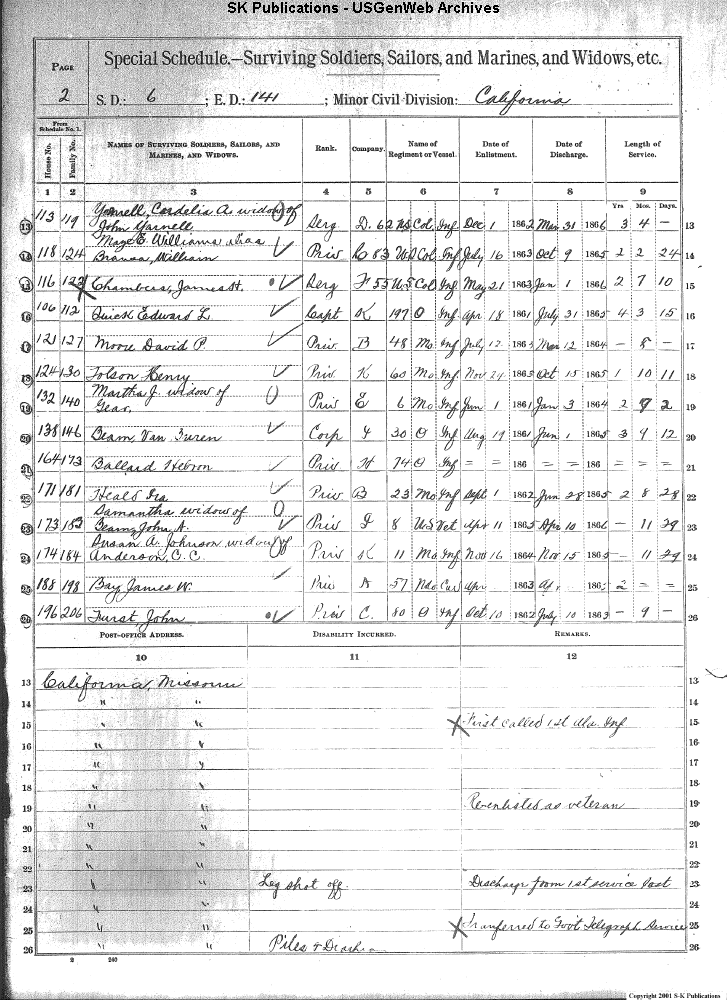 SK Publications - USGenWeb Archives
PAGE
2
Special Schedule.—Surviving Soldiers, Sailors, and Marines, and Widows, etc.
S. D.: 6 ; E. D.: 141 ; Minor Civil Division: California
From Schedule No. 1.
House No. Family No. NAMES OF SURVIVING SOLDIERS, SAILORS, AND MARINES, AND WIDOWS. Rank. Company. Name of Regiment or Vessel. Date of Enlistment. Date of Discharge. Length of Service.
1 2 3 4 5 6 7 8 9
Yrs Mos. Days.
13 113 119 Yarnell, Cordelia A. widow of
John Yarnell Serg D. 62 US Col. Inf Dec 1 1862 Mar 31 1866 3 4 — 13
Maze E. Williams alias
14 118 124 William Priv C 83 US Col. Inf July 16 1863 Oct 9 1865 2 2 24 14
15 116 122 Chambers, James H. Serg F 55 US Col Inf May 21 1863 Jan 1 1866 2 7 10 15
16 106 112 Quick Edward L. Capt K 197 O Inf Apr 18 1861 July 31 1865 4 3 15 16
17 121 127 Moore David P. Priv B 48 Mo Inf July 12 1863 Mar 12 1864 — 8 — 17
18 124 130 Tolson Henry Priv. K 60 Mo Inf Nov 24 1863 Oct 15 1865 1 10 11 18
Martha J. widow of
19 132 140 Gear, Priv E 6 Mo Inf Jun 1 1861 Jan 3 1864 2 9 2 19
20 138 146 Beam, Van Buren Corp F 30 O Inf Aug 19 1861 Jun 1 1865 3 9 12 20
21 164 173 Ballard Hebron Priv H 74 O Inf = = 186 = = 186 = = = 21
22 171 181 Heald Ira Priv B 23 Mo Inf Sept 1 1862 Jun 28 1865 2 8 28 22
Samantha widow of
23 173 183 Beam, John A. Priv I 8 US Vet Apr 11 1865 Apr 10 1866 — 11 29 23
Susan A. Johnson widow of
24 174 184 Anderson, C. C. Priv K 11 Mo Inf Nov 16 1864 Nov 15 1865 — 11 29 24
25 188 198 Bay, James W. Priv A 57 Cav Apr 1863 Ap. 186 2 = = 25
26 196 206 Furst, John Priv C. 80 O Inf Oct 10 1862 July 10 1863 — 9 — 26
POST-OFFICE ADDRESS. DISABILITY INCURRED. REMARKS.
10 11 12
13 California, Missouri 13
14 " " 14
15 " " First called 1st Ala. Inf 15
16 " " 16
17 " " 17
18 " " 18
19 " " Reenlisted as veteran 19
20 " " 20
21 " " 21
22 " " 22
23 " " Leg shot off. Discharge from 1st service lost 23
24 " " 24
25 " " Tranferred to Govt Telegraph Service 25
26 " " Piles & 26
2 240
Copyright 2001 S-K Publications